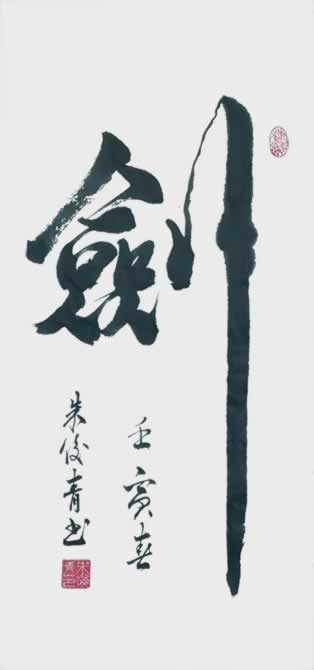 劍
壬寅春
朱俊青书